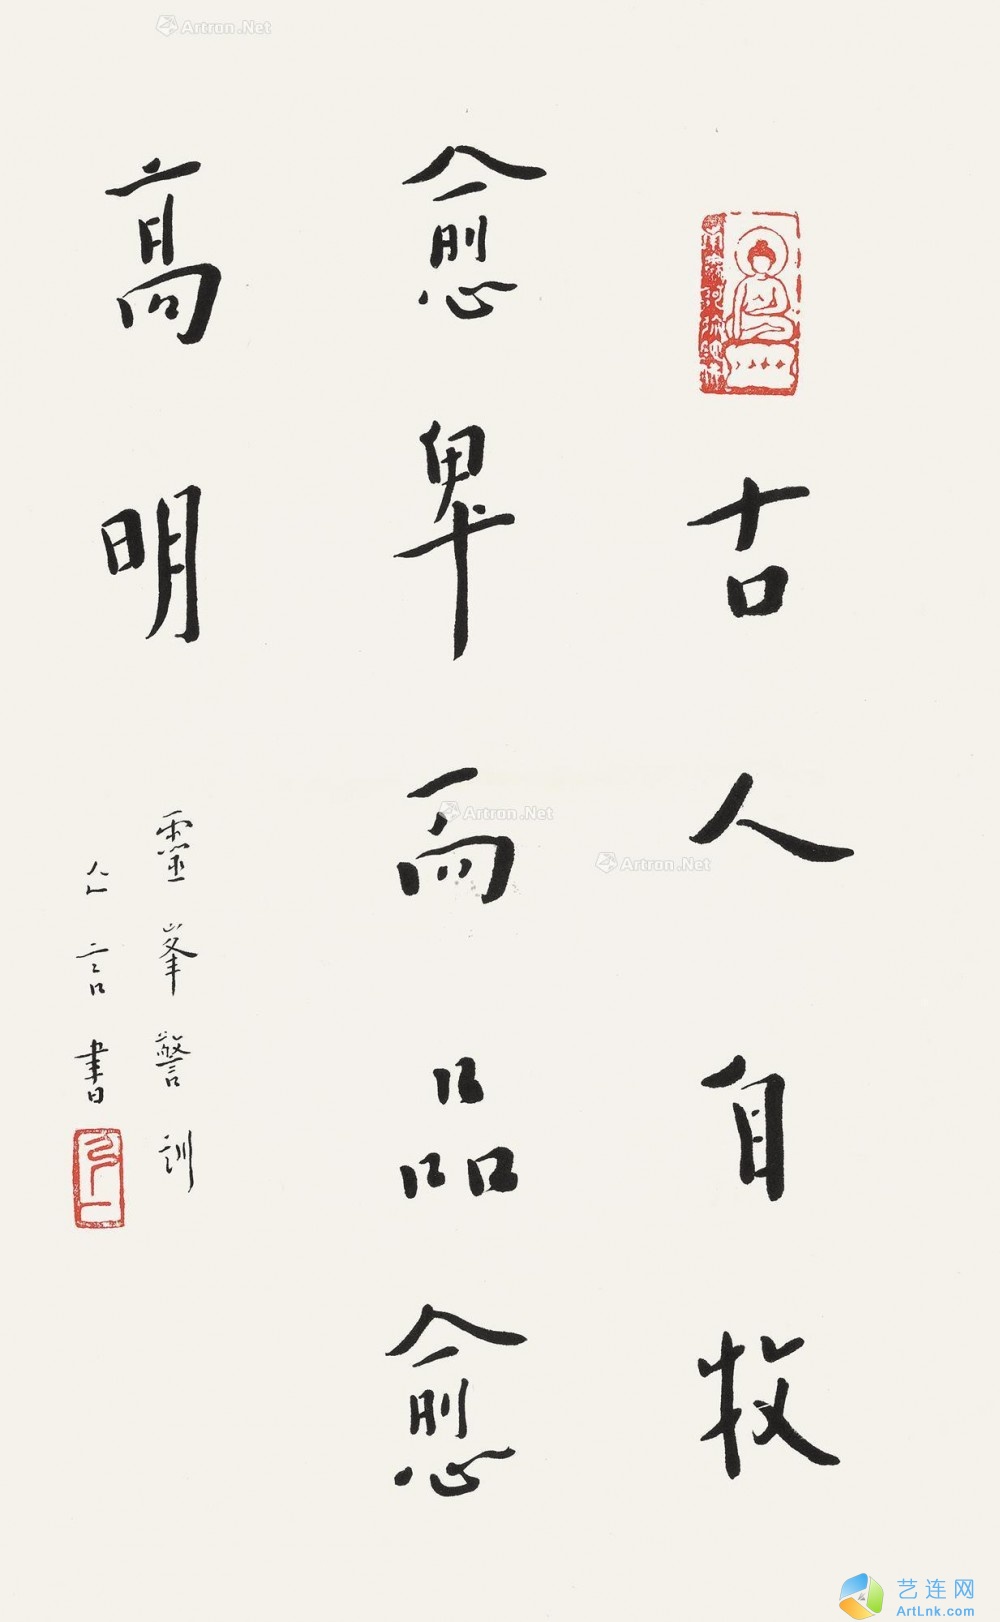 古人自牧
愈卑而品愈
高明
靈峯警訓
亼言書
Artron.Net
Artron.Net
Artron.Net
艺连网
ArtLnk.com